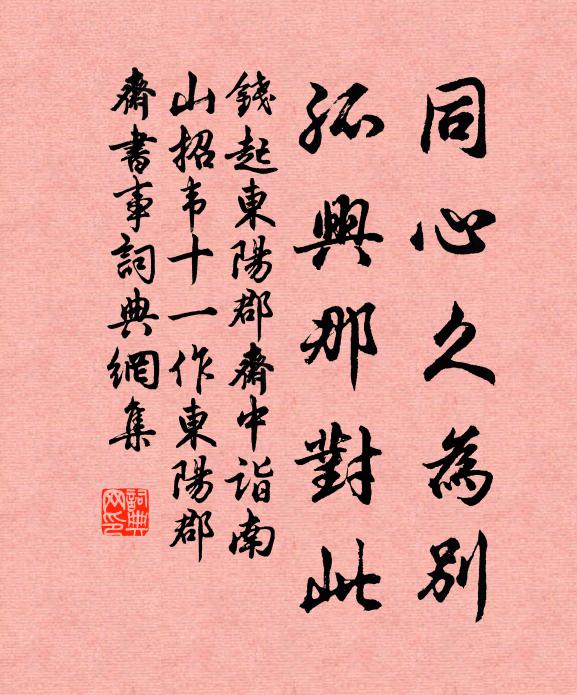 同心久為別
孤興那對此
錢起東陽郡齋中詣南
山招韦十一作東陽郡
齋書事詞典網集
詞典网印